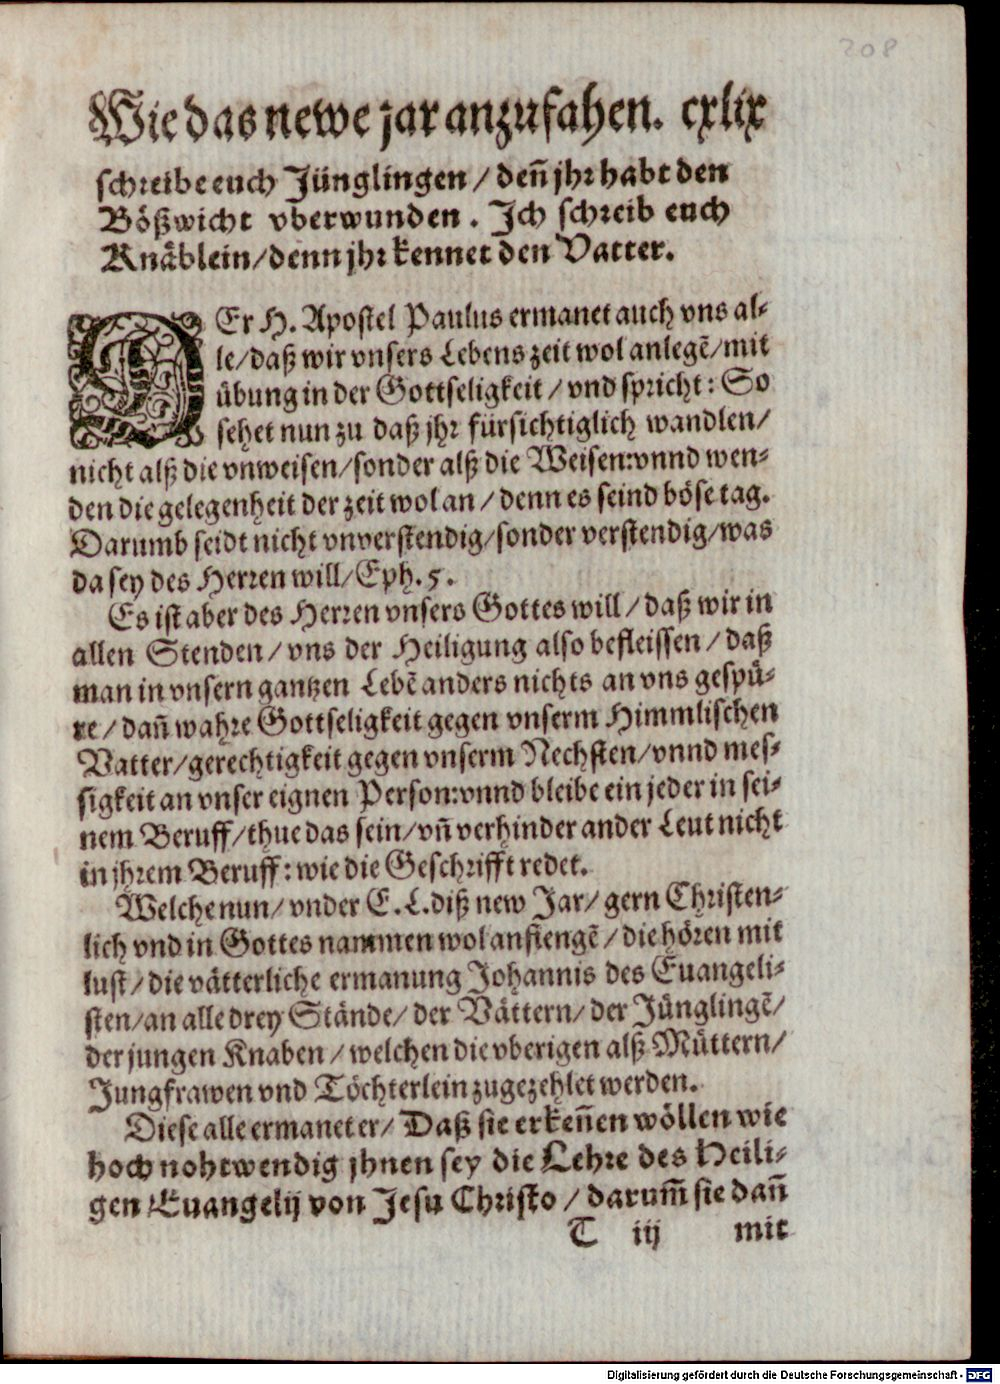 208
Wie das newe jar anzufahen. cxlix
schreibe euch Jünglingen / deñ jhr habt den
Bößwicht vberwunden. Ich schreib euch
Knäblein / denn jhr kennet den Vatter.
DEr H. Apostel Paulus ermanet auch vns al-
le / daß wir vnsers Lebens zeit wol anlegẽ / mit
übung in der Gottseligkeit / vnd spricht: So
sehet nun zu daß jhr fürsichtiglich wandlen /
nicht alß die vnweisen / sonder alß die Weisen: vnnd wen-
den die gelegenheit der zeit wol an / denn es seind böse tag.
Darumb seidt nicht vnverstendig / sonder verstendig / was
da sey des Herren will / Eph. 5.
Es ist aber des Herren vnsers Gottes will / daß wir in
allen Stenden / vns der Heiligung also befleissen / daß
man in vnsern gantzen Lebẽ anders nichts an vns gespü-
re / dañ wahre Gottseligkeit gegen vnserm Himmlischen
Vatter / gerechtigkeit gegen vnserm Nechsten / vnnd mes-
sigkeit an vnser eignen Person: vnnd bleibe ein jeder in sei-
nem Beruff / thue das sein / vñ verhinder ander Leut nicht
in jhrem Beruff: wie die Geschrifft redet.
Welche nun / vnder E. L. diß new Jar / gern Christen-
lich vnd in Gottes nammen wol anfiengẽ / die hören mit
lust / die vätterliche ermanung Johannis des Euangeli-
sten / an alle drey Stände / der Vättern / der Jünglingẽ /
der jungen Knaben / welchen die vberigen alß Müttern /
Jungfrawen vnd Töchterlein zugezehlet werden.
Diese alle ermanet er / Daß sie erkeñen wöllen wie
hoch nohtwendig jhnen sey die Lehre des Heili-
gen Euangelij von Jesu Christo / darum̃ sie dañ
T iij mit
Digitalisierung gefördert durch die Deutsche Forschungsgemeinschaft - DFG